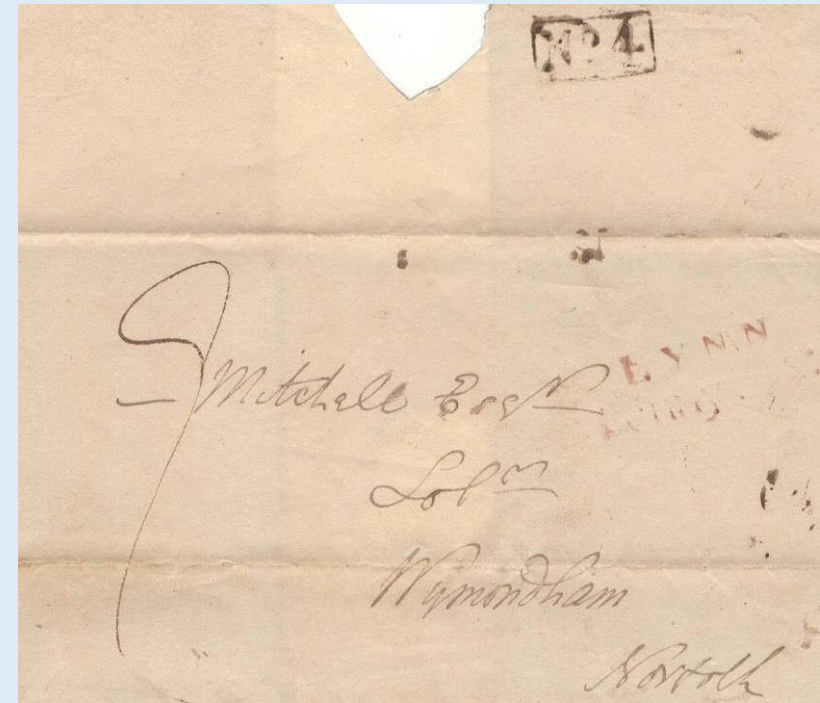 No 4
LYNN
Penny
— Mitchell Esqr
Solr
Wymondham
Norfolk